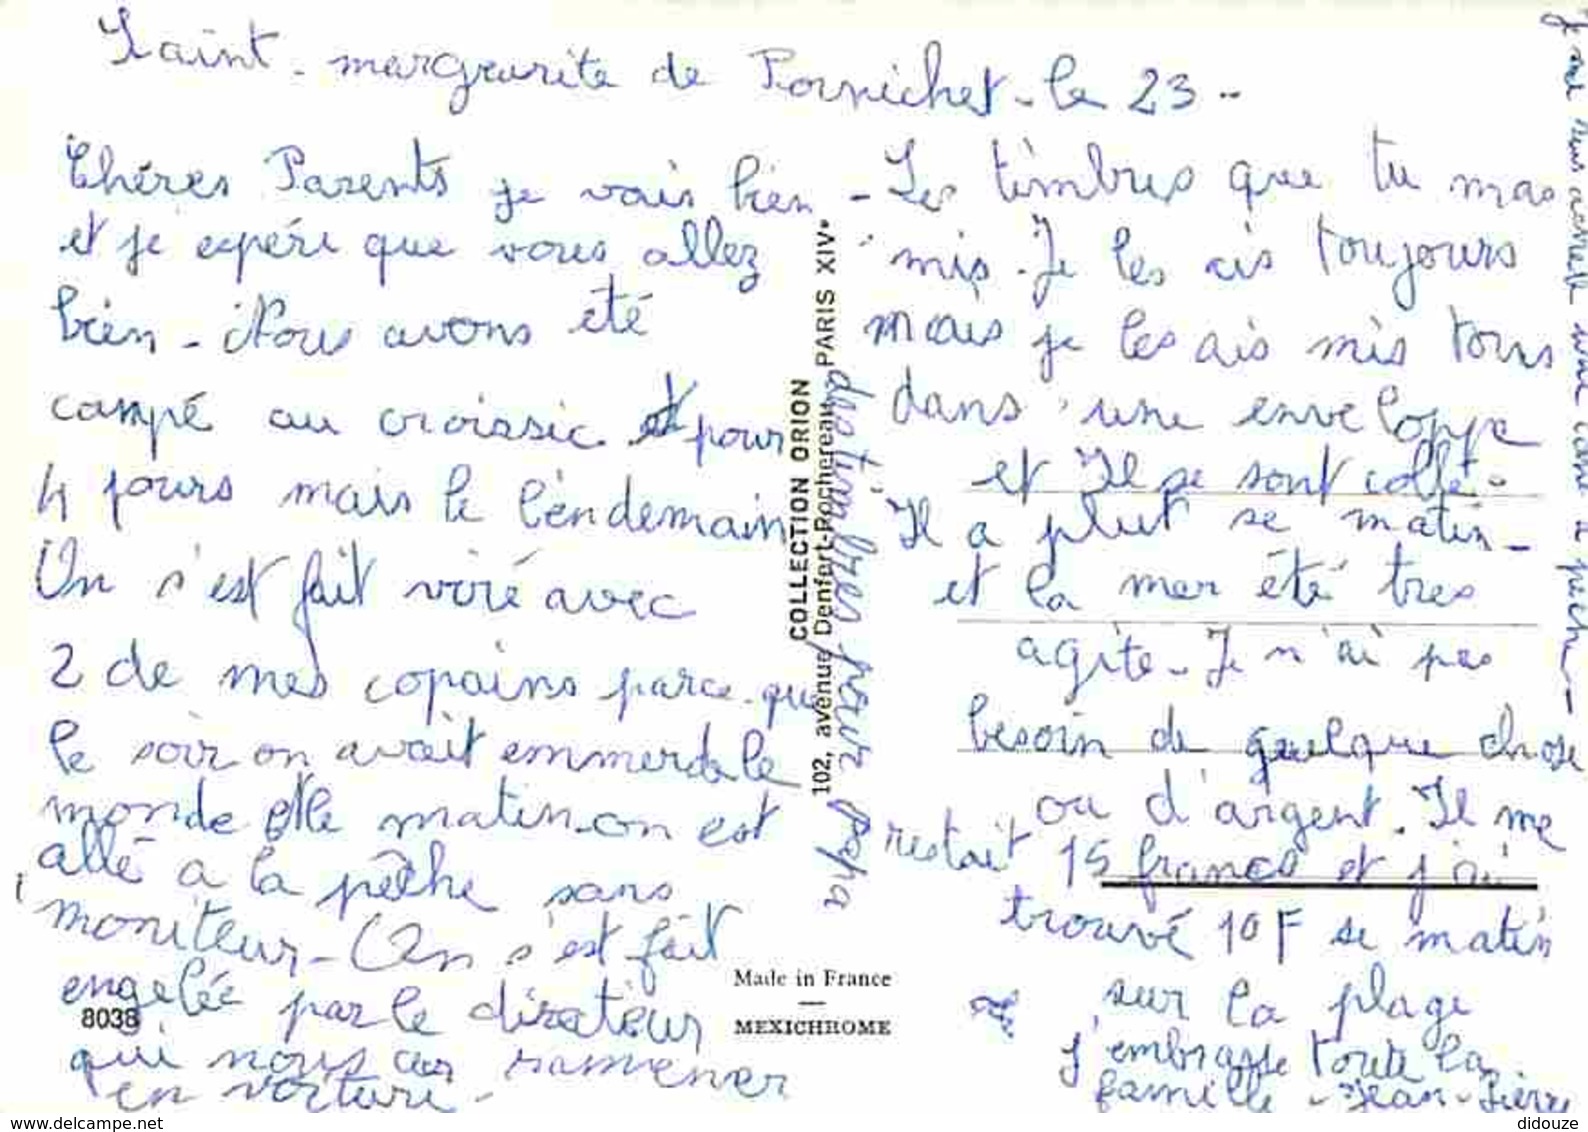 Saint-margurite de Pornichet - le 23 -
Chéres Parents je vais bien
et je espére que vous allez
bien - Nous avons été
campé au croissic et pour
4 jours mais le lèndemain
On s'est fait viré avec
2 de mes copains parce que
le soir on avait emmerde le
monde et le matin on est
allé a la pêche sans
moniteur - On s'est fait
engelée par le dirateur
qui nous as ramener
en voiture -
8038
COLLECTION ORION
102, avenue Denfert-Rochereau, PARIS XIVe
des timbres pour papa
Made in France
MEXICHROME
- Les timbres que tu mas
mis. Je les ais toujours
mais je les ais mis tous
dans une enveloppe
et Il se sont collé -
Il a plut se matin -
et la mer été tres
agite - Je n'ai pas
besoin de quelque chose
ou d'argent. Il me
restait 15 francs et j'ai
trouvé 10 F se matin
sur la plage
J'embrasse toute la
famille - Jean-Pierre
Je me suis acheté une cane a peche -
delcampe.net
didouze